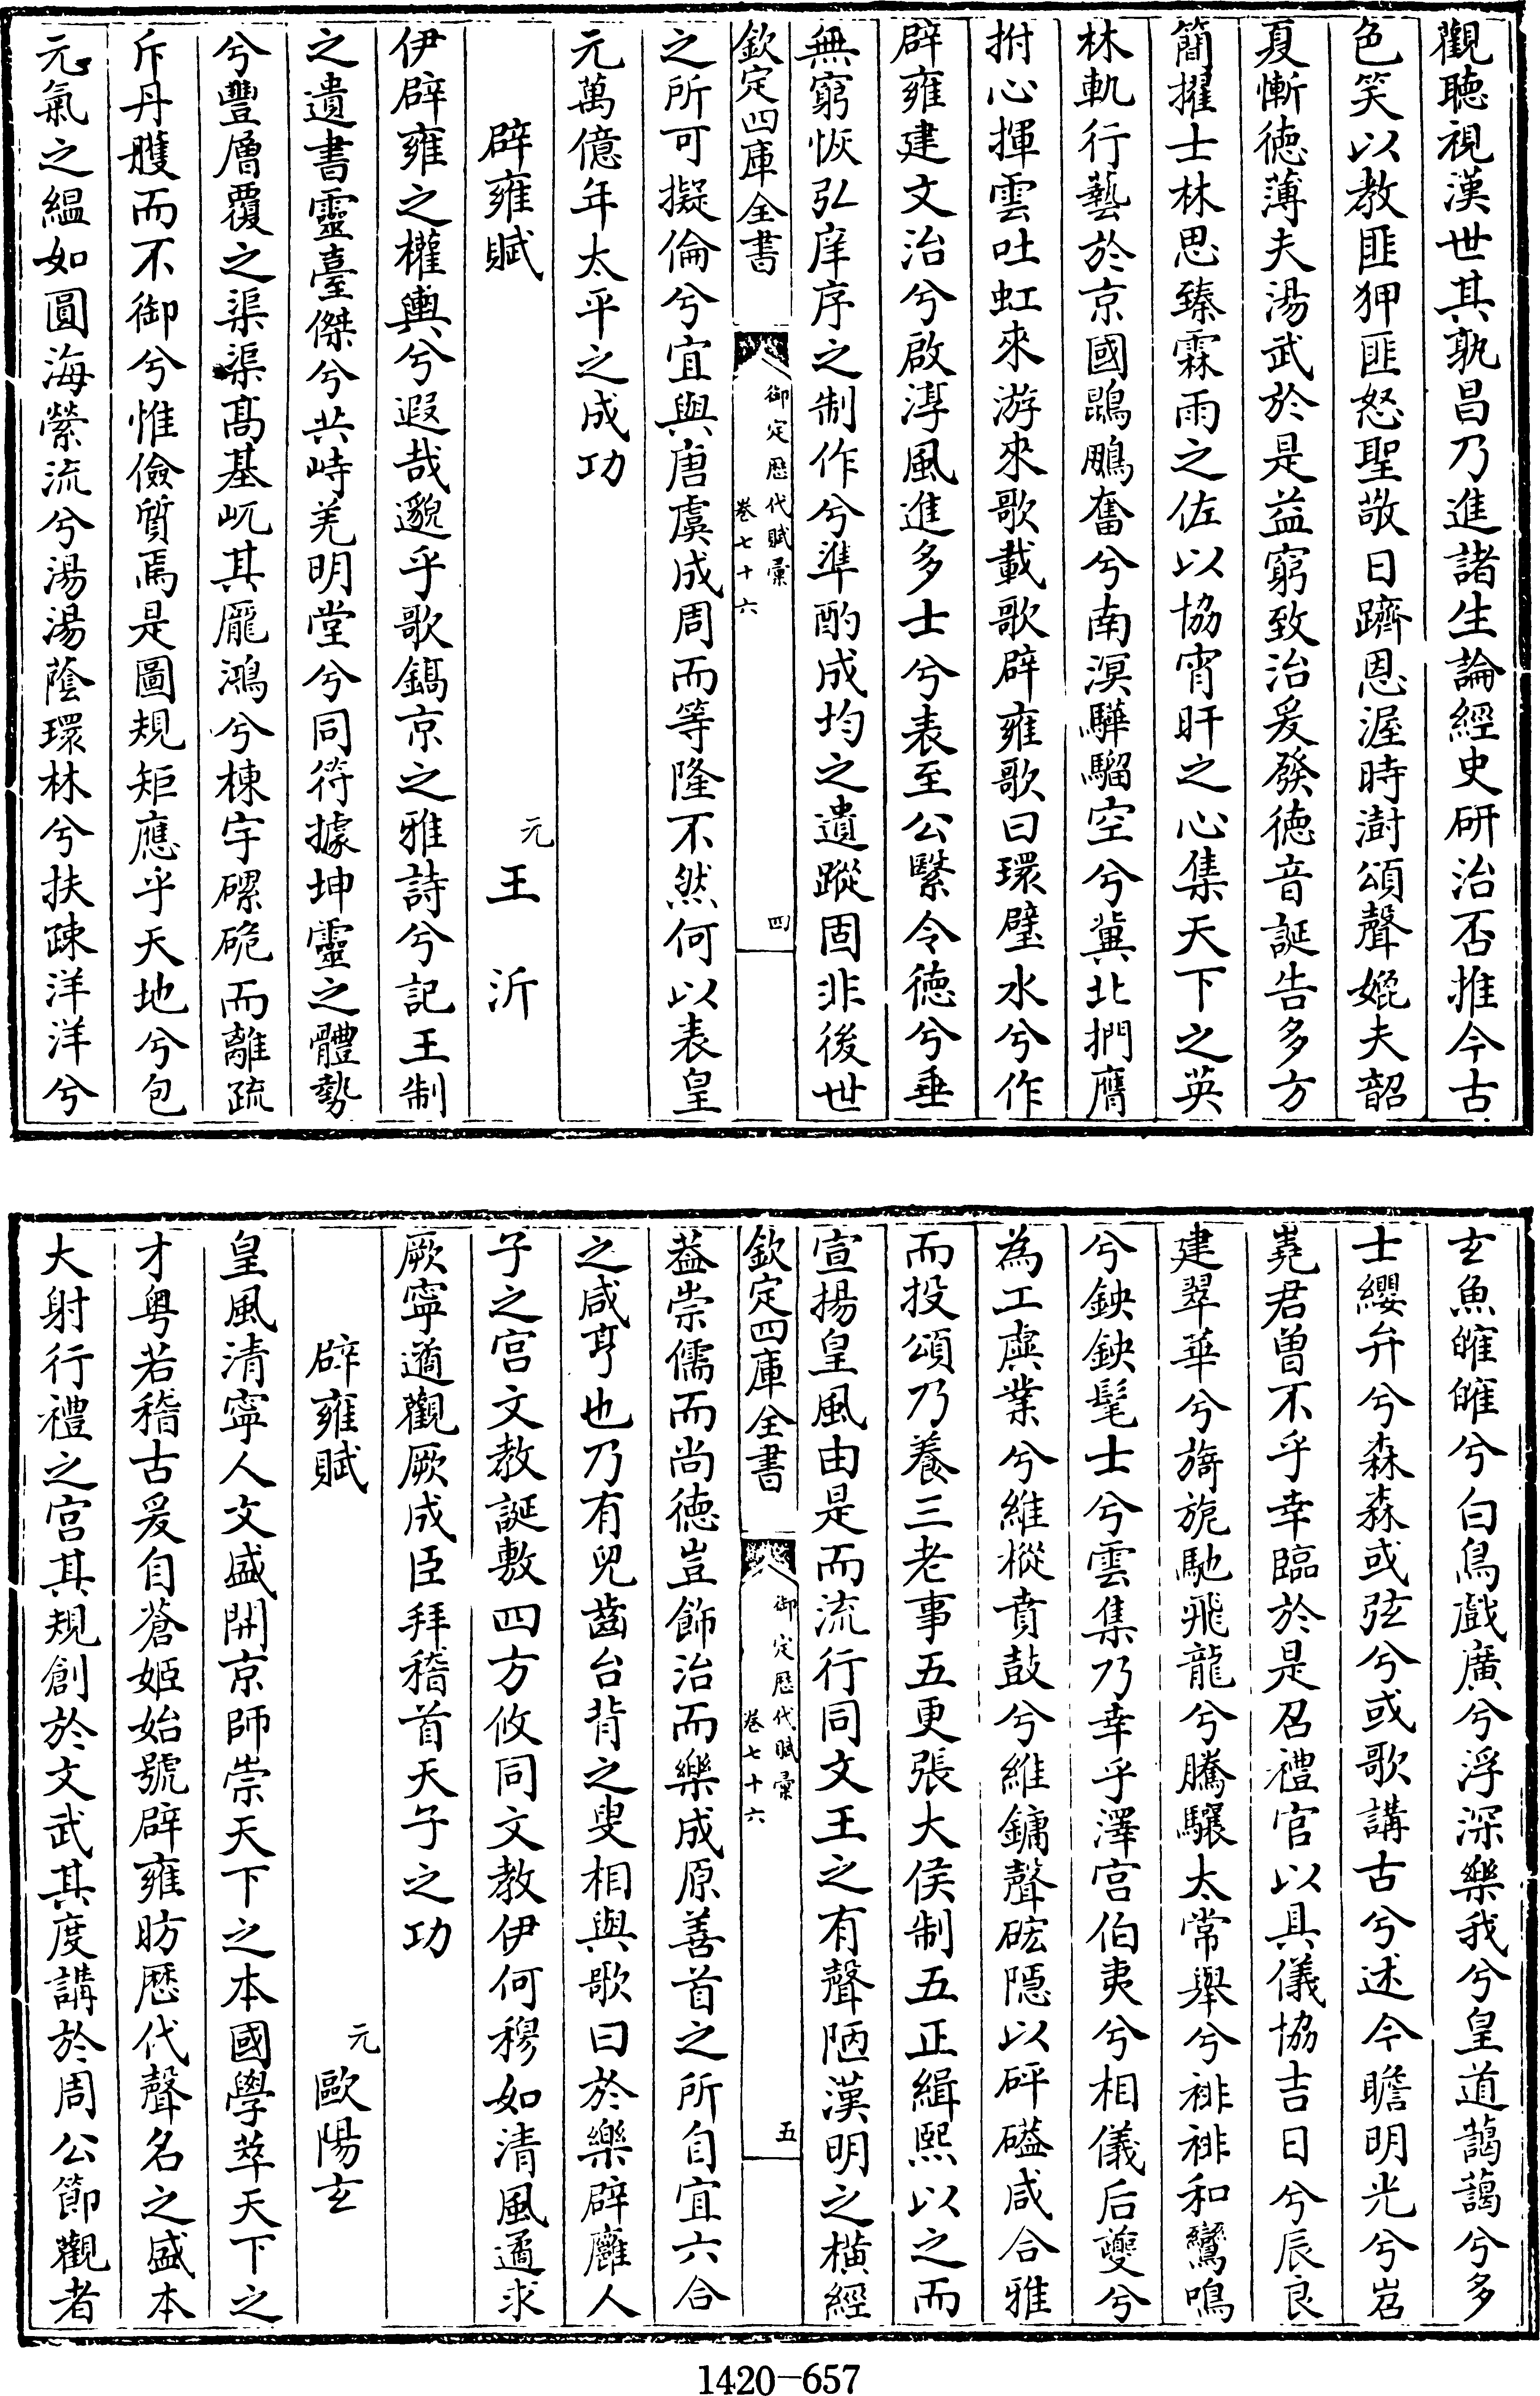 觀聴視漢世其孰昌乃進諸生論經史研治否推今古
色笑以教匪狎匪怒聖敬日躋恩渥時澍頌聲媲夫韶
夏慚德薄夫湯武於是益窮致治爰發德音誕告多方
簡擢士林思臻霖雨之佐以協宵旰之心集天下之英
林軌行藝於京國鵾鵬奮兮南溟驊騮空兮冀北捫膺
拊心揮雲吐虹來游來歌載歌辟雍歌曰環璧水兮作
辟雍建文治兮啟淳風進多士兮表至公繄令德兮垂
無窮恢弘庠序之制作兮準酌成均之遺蹤固非後世
欽定四庫全書
御定歷代賦彙
卷七十六
四
之所可擬倫兮宜與唐虞成周而等隆不然何以表皇
元萬億年太平之成功
辟雍賦
元
王沂
伊辟雍之權輿兮遐哉邈乎歌鎬京之雅詩兮記王制
之遺書靈臺傑兮共峙羌明堂兮同符據坤靈之體勢
兮豐層覆之渠渠髙基屼其龎鴻兮棟宇磥硊而離䟽
斥丹雘而不御兮惟儉質焉是圖規矩應乎天地兮包
元氣之緼如圓海縈流兮湯湯蔭環林兮扶踈洋洋兮
玄魚皠皠兮白鳥戲廣兮浮深樂我兮皇道藹藹兮多
士纓弁兮森森或弦兮或歌講古兮述今瞻明光兮岧
嶤君曽不乎幸臨於是召禮官以具儀協吉日兮辰良
建翠華兮旖旎馳飛龍兮騰驤太常舉兮裶裶和鸞鳴
兮鉠鉠髦士兮雲集乃幸乎澤宮伯夷兮相儀后夔兮
為工虡業兮維樅賁鼓兮維鏞聲硡隱以砰磕咸合雅
而投頌乃養三老事五更張大侯制五正緝熙以之而
宣揚皇風由是而流行同文王之有聲陋漢明之橫經
欽定四庫全書
御定歷代賦彙
卷七十六
五
葢崇儒而尚德豈飾治而樂成原善首之所自宜六合
之咸亨也乃有兒齒台背之叟相與歌曰於樂辟廱人
子之宮文教誕敷四方攸同文教伊何穆如清風遹求
厥寧遹觀厥成臣拜稽首天子之功
辟雍賦
元
歐陽玄
皇風清寧人文盛開京師崇天下之本國學萃天下之
才粤若稽古爰自蒼姬始號辟雍昉歴代聲名之盛本
大射行禮之宮其規創於文武其度講於周公節觀者
1420-657